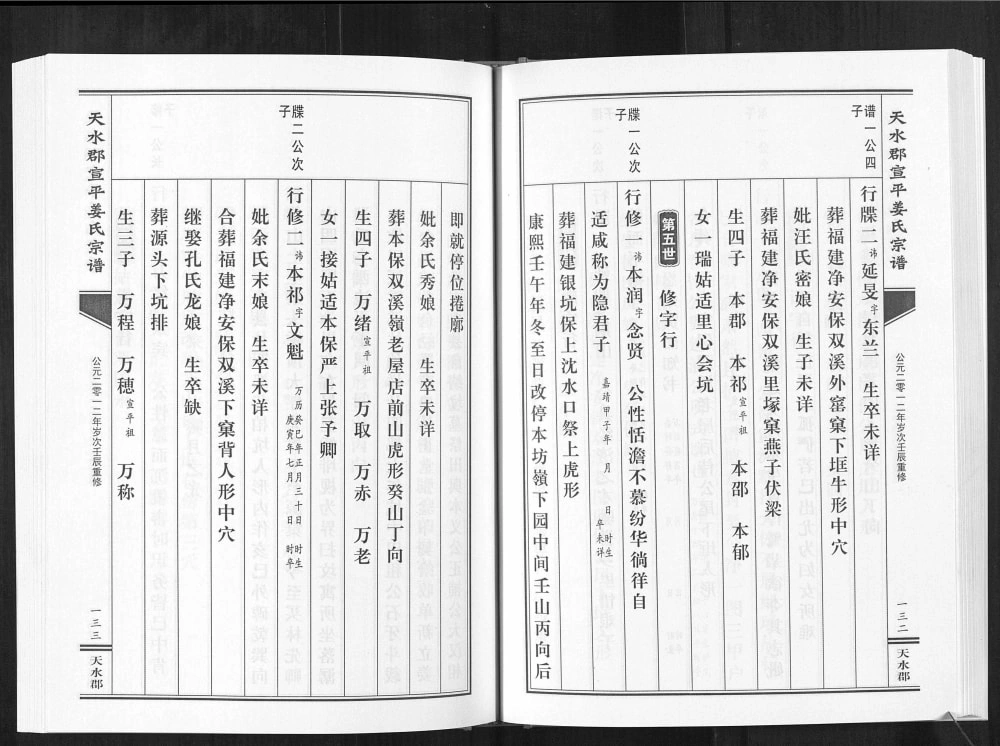 天水郡宣平姜氏宗谱
公元二零一二年岁次壬辰重修
一三二
天水郡
谱一公四子
行牒二讳延旻字东兰 生卒未详
葬福建净安保双溪外窑窠下垇牛形中穴
妣汪氏密娘 生子未详
葬福建净安保双溪里塚窠燕子伏梁
生四子 本郡 本祁宣平祖 本邵 本郁
女一瑞姑适里心会坑
第五世 修字行
牒一公次子
行修一讳本润字念贤 公性恬澹不慕纷华徜徉自
适咸称为隐君子 嘉靖甲子年 月 日 时生 卒未详
葬福建银坑保上沈水口祭上虎形
康熙壬午年冬至日改停本坊嶺下园中间壬山丙向后
即就停位捲廓
妣余氏秀娘 生卒未详
葬本保双溪嶺老屋店前山虎形癸山丁向
生四子 万绪宣平祖 万取 万赤 万老
女一接姑适本保严上张予卿
牒二公次子
行修二讳本祁字文魁 万历癸巳年正月三十日 时生 庚寅年七月 日 时卒
妣余氏末娘 生卒未详
合葬福建净安保双溪下窠背人形中穴
继娶孔氏龙娘 生卒缺
葬源头下坑排
生三子 万程 万穗宣平祖 万称
天水郡宣平姜氏宗谱
公元二零一二年岁次壬辰重修
一三三
天水郡